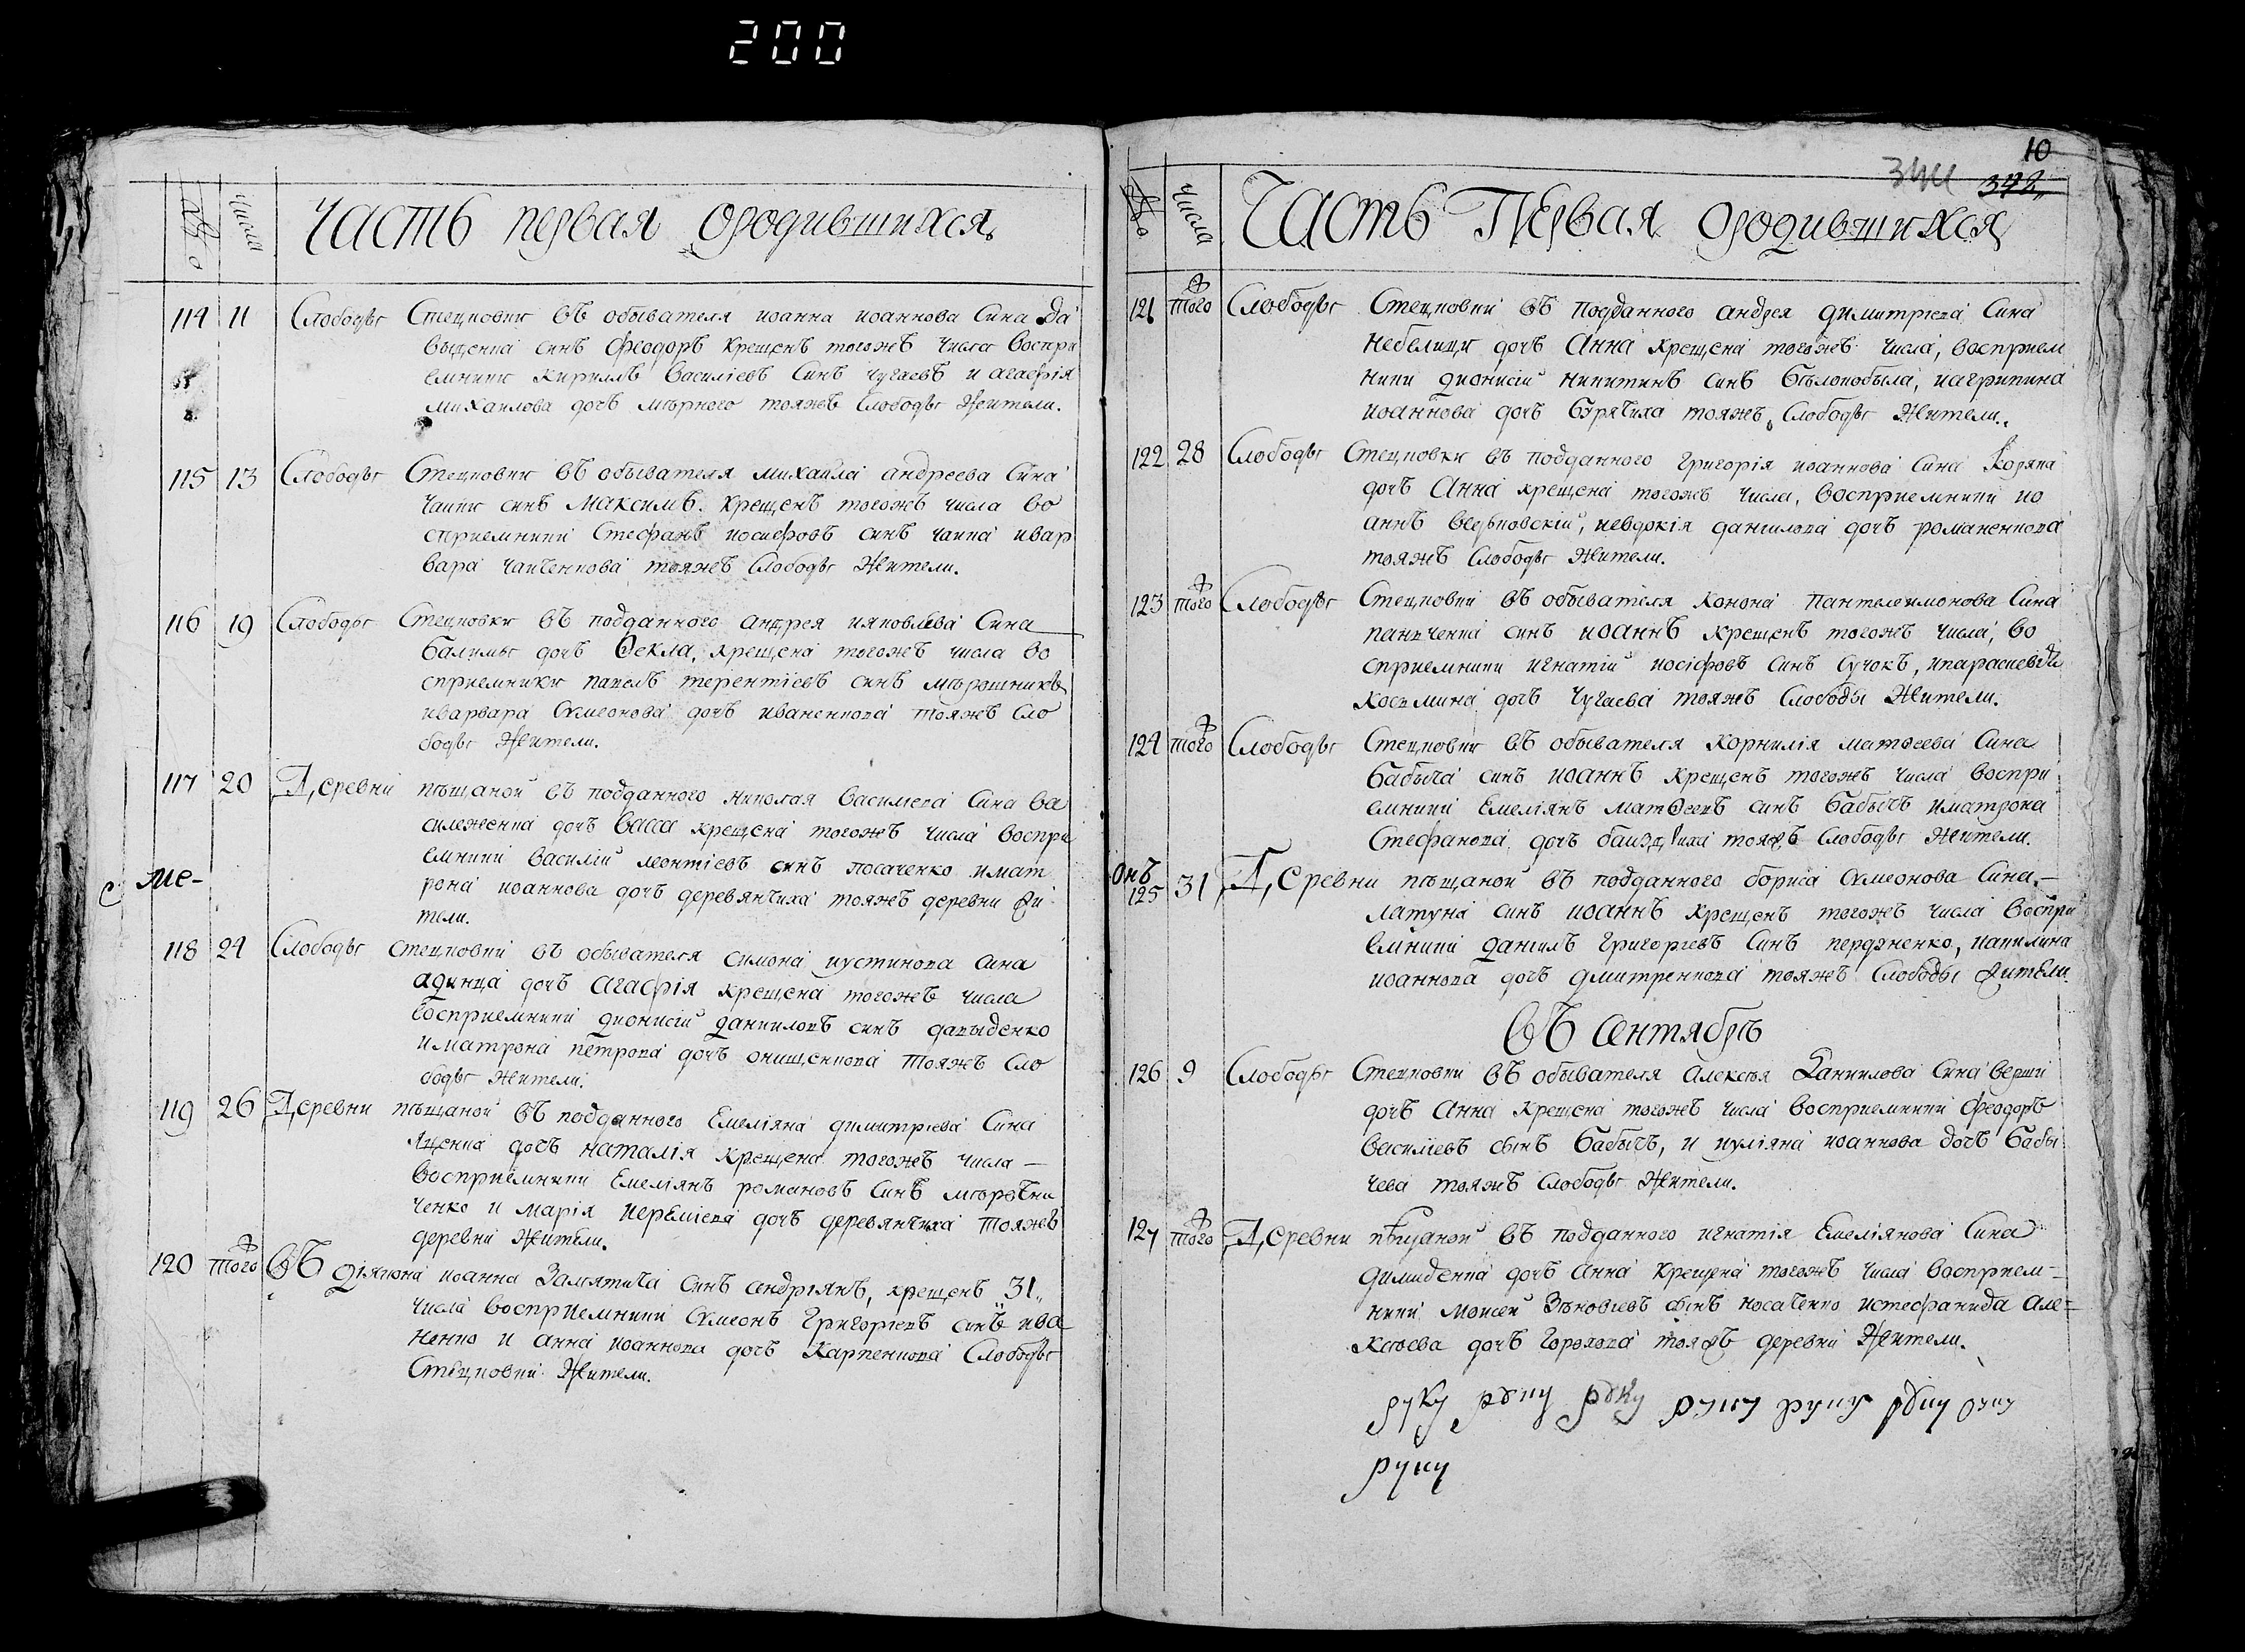 200
№о числа Часть первая ородившихся
114 11 Слободы Стецковки въ обывателя иоанна иоаннова сина Да
выденка синъ Феодоръ крещенъ тогожъ числа воспри
емники кирилъ василіевъ синъ чугаевъ и агафія
михаилова дочъ мѣрного тояжъ слободы жители.
115 13 Слободы Стецковки въ обывателя михаила андреева сина
чайки синъ максимъ крещенъ тогожъ числа во
сприемники Стефанъ иосифовъ синъ чайка ивар
вара чайченкова тояжъ слободы жители.
116 19 Слободы Стецковки въ подданного андрея ияковлева сина
балимы дочъ Ѳекла, крещена тогожъ числа во
сприемники павелъ терентіевъ синъ мѣрошникъ
иварвара симеонова дочъ иваненкова тояжъ сло
боды жители.
117 20 Деревни пѣщаной въ подданного николая василіева сина ва
силженка дочъ васса крещена тогожъ числа воспри
емники василій леонтіевъ синъ косаченко имат
рона иоаннова дочъ деревянчиха тояжъ деревни жи
тели.
с ме-
118 24 Слободы стецковки въ обывателя симона иустинова сина
адинца дочъ агафія крещена тогожъ числа
восприемники дионисій даниловъ синъ давыденко
иматрона петрова дочъ онищенкова тояжъ сло
боды жители.
119 26 Деревни пѣщаной въ подданного Емеліяна димитріева сина
яценка дочъ наталія крещена тогожъ числа —
восприемники Емеліянъ романовъ синъ мѣрошни
ченко и марія иереміева дочъ деревянчиха тояжъ
деревни жители.
120 того въ діякона иоанна Замятича синъ андріянъ, крещенъ 31
числа восприемники симеонъ григоріевъ синъ ива
ненко и анна иоаннова дочъ карпенкова слободы
Стецковки жители.
10
344 342
№о числа Часть Первая ородившихся
121 того Слободы Стецковки въ подданного андрея димитріева сина
небелици дочъ Анна крещена тогожъ числа, восприем
ники дионисій никитинъ синъ бѣлокобыла, иагрипина
иоаннова дочъ бэрячиха тояжъ слободы жители.
122 28 Слободы Стецковки въ подданного григорія иоаннова сина коряка
дочъ Анна крещена тогожъ числа, восприемники ио
аннъ иевдокія даниилова дочъ романенкова
тояжъ слободы жители.
123 того Слободы Стецковки въ обывателя конона пантелеимонова сина
панченка синъ иоаннъ крещенъ тогожъ числа, во
сприемники игнатій иосіфовъ синъ сучокъ, ипараскевія
косьмина дочъ чугаева тояжъ слободы жители.
124 того Слободы Стецковки въ обывателя корнилія матѳеева сина
бабыча синъ иоаннъ крещенъ тогожъ числа воспри
емники Емеліянъ матѳеевъ синъ бабычъ иматрона
Стефанова дочъ тояжъ слободы жители.
онъ
125 31 Деревни пѣщаной въ подданного бориса симеонова сина —
латуна синъ иоаннъ крещенъ тогожъ числа воспри
емники даниилъ григоріевъ синъ иакилина
иоаннова дочъ дмитренкова тояжъ слободы жители.
въ сентябрѣ
126 9 Слободы Стецковки въ обывателя алексѣя даниилова сина верши
дочъ анна крещена тогожъ числа восприемники феодоръ
василіевъ сынъ бабычъ, и иуліяна иоаннова дочъ бабы
чева тояжъ слободы жители.
127 того Деревни пѣщаной въ подданного игнатія Емеліянова сина
димиденка дочъ анна крещена тогожъ числа восприем-
ники моисей Зѣновіевъ сынъ косаченко истефанида але-
ксѣева дочъ горохова тояжъ деревни жители.
руку руку руку руку руку руку руку
руку